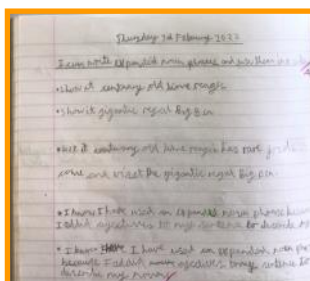 Thursday 3rd February 2022
I can write expanded noun phrases and use them in a
• show it centuary old have magic
• show it gigantic regal Big Ben
• it centuary old have magic has rare
come and visit the gigantic regal Big Ben.
• I know I have used an expanded noun phrase because
I added adjectives to my sentence to describe
• I know I have used an expanded noun
because I added adjectives to my sentence to
describe my noun